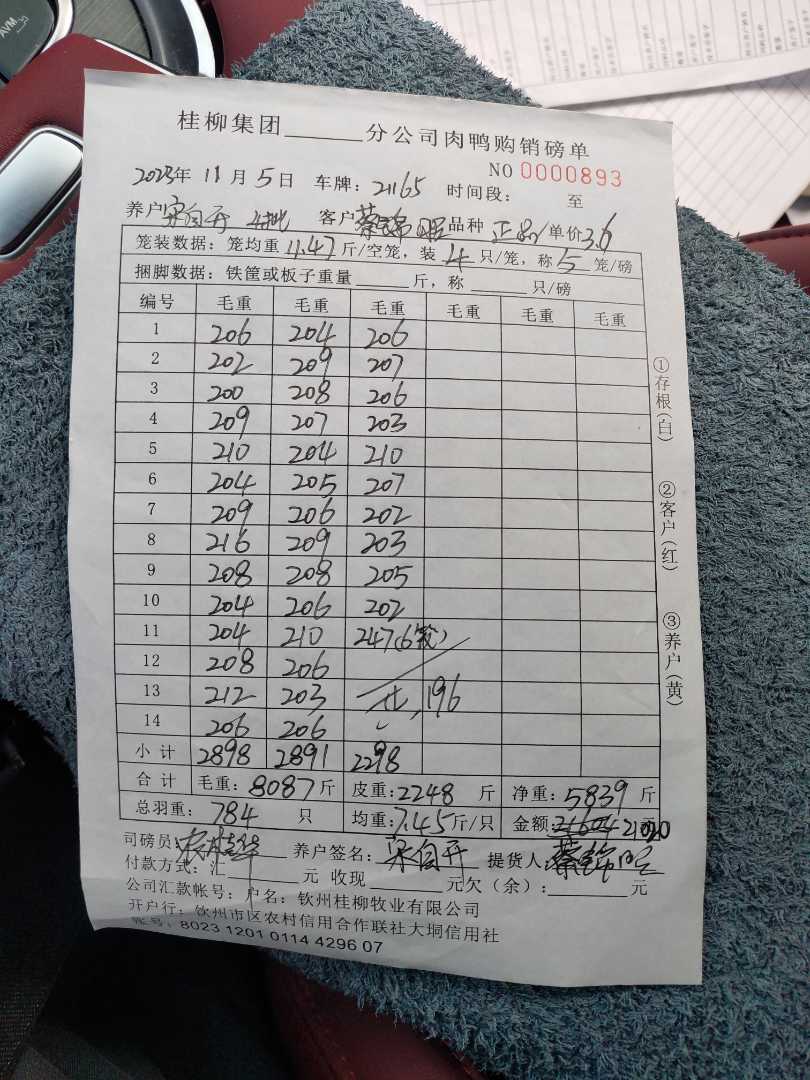 桂柳集团______分公司肉鸭购销磅单
NO 0000893
2023年 11月5日 车牌：21165 时间段： 至
养户 客户 品种 正品 单价3.6
笼装数据：笼均重11.47斤/空笼，装4只/笼，称5笼/磅
捆脚数据：铁筐或板子重量______斤，称______只/磅
编号 毛重 毛重 毛重 毛重 毛重 毛重
1 206 204 206
2 202 209 207
3 200 208 206
4 209 207 203
5 210 204 210
6 204 205 207
7 209 206 202
8 216 209 203
9 208 208 205
10 204 206 202
11 204 210 247(6笼)
12 208 206
13 212 203 共,196
14 206 206
小计 2898 2891 2298
合计 毛重：8087斤 皮重：2248斤 净重：5839斤
总羽重：784只 均重：7.45斤/只 金额：21604 21020元
司磅员： 养户签名： 提货人：
付款方式：汇______元 收现______元欠（余）：______元
公司汇款帐号：户名：钦州桂柳牧业有限公司
开户行：钦州市区农村信用合作联社大垌信用社
账号：8023 1201 0114 4296 07
①存根（白）
②客户（红）
③养户（黄）
AVM